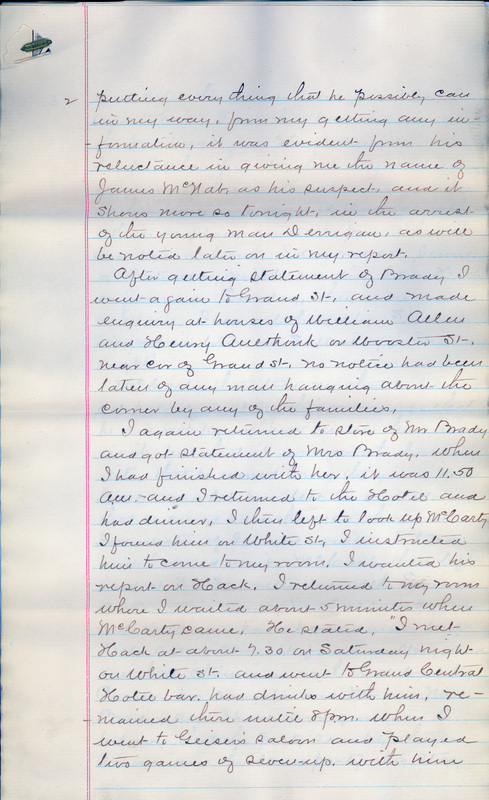 2 putting every thing that he possibly can
in my way, from my getting any in-
-formation, it was evident from his
reluctance in giving me the name of
James McNab, as his suspect, and it
shows more so tonight, in the arrest
of the young man Derrigan, as will
be noted later on in my report.
After getting statement of Brady I
went again to Grand St. and made
enquiry at houses of William Allen
and Henry on Wooster St.
near cor of Grand St. no notice had been
taken of any man hanging about the
corner by any of the families,
I again returned to store of Mr Brady
and got statement of Mrs Brady. when
I had finished with her, it was 11.50
am. and I returned to the Hotel and
had dinner, I then left to look up McCarty
I found him on White St, I instructed
him to come to my room. I wanted his
report on Hack. I returned to my room
where I waited about 5 minutes when
McCarty came. He stated, "I met
Hack at about 7.30 on Saturday night
on White St. and went to Grand Central
Hotel bar. had drinks with him, re-
-mained there until 8 pm. when I
went to Geisers saloon and played
two games of seven-up. with him